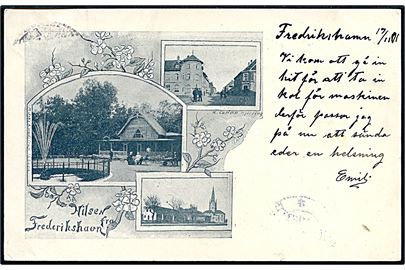 Fredrikshamn 17/2 01
Vi kom att gå in
hit för att ta in
kol för maskinen
derför passar jag
på nu att sända
eder en helsning
Emil
Hilsen
fra
Frederikshavn